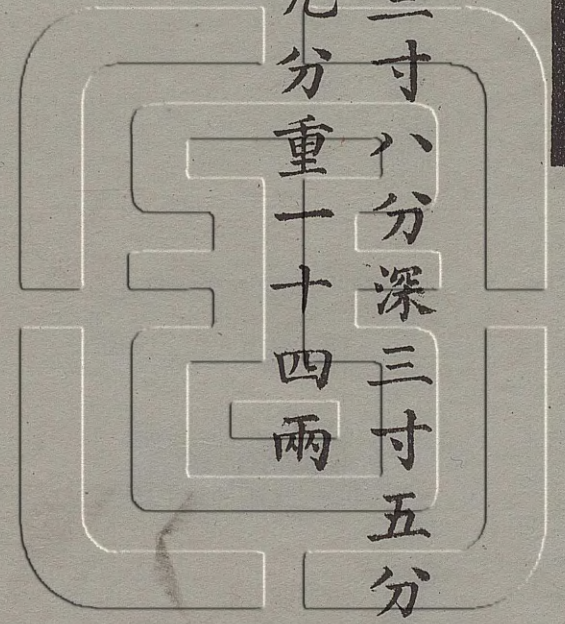 寸八分深三寸五分
分重一十四兩